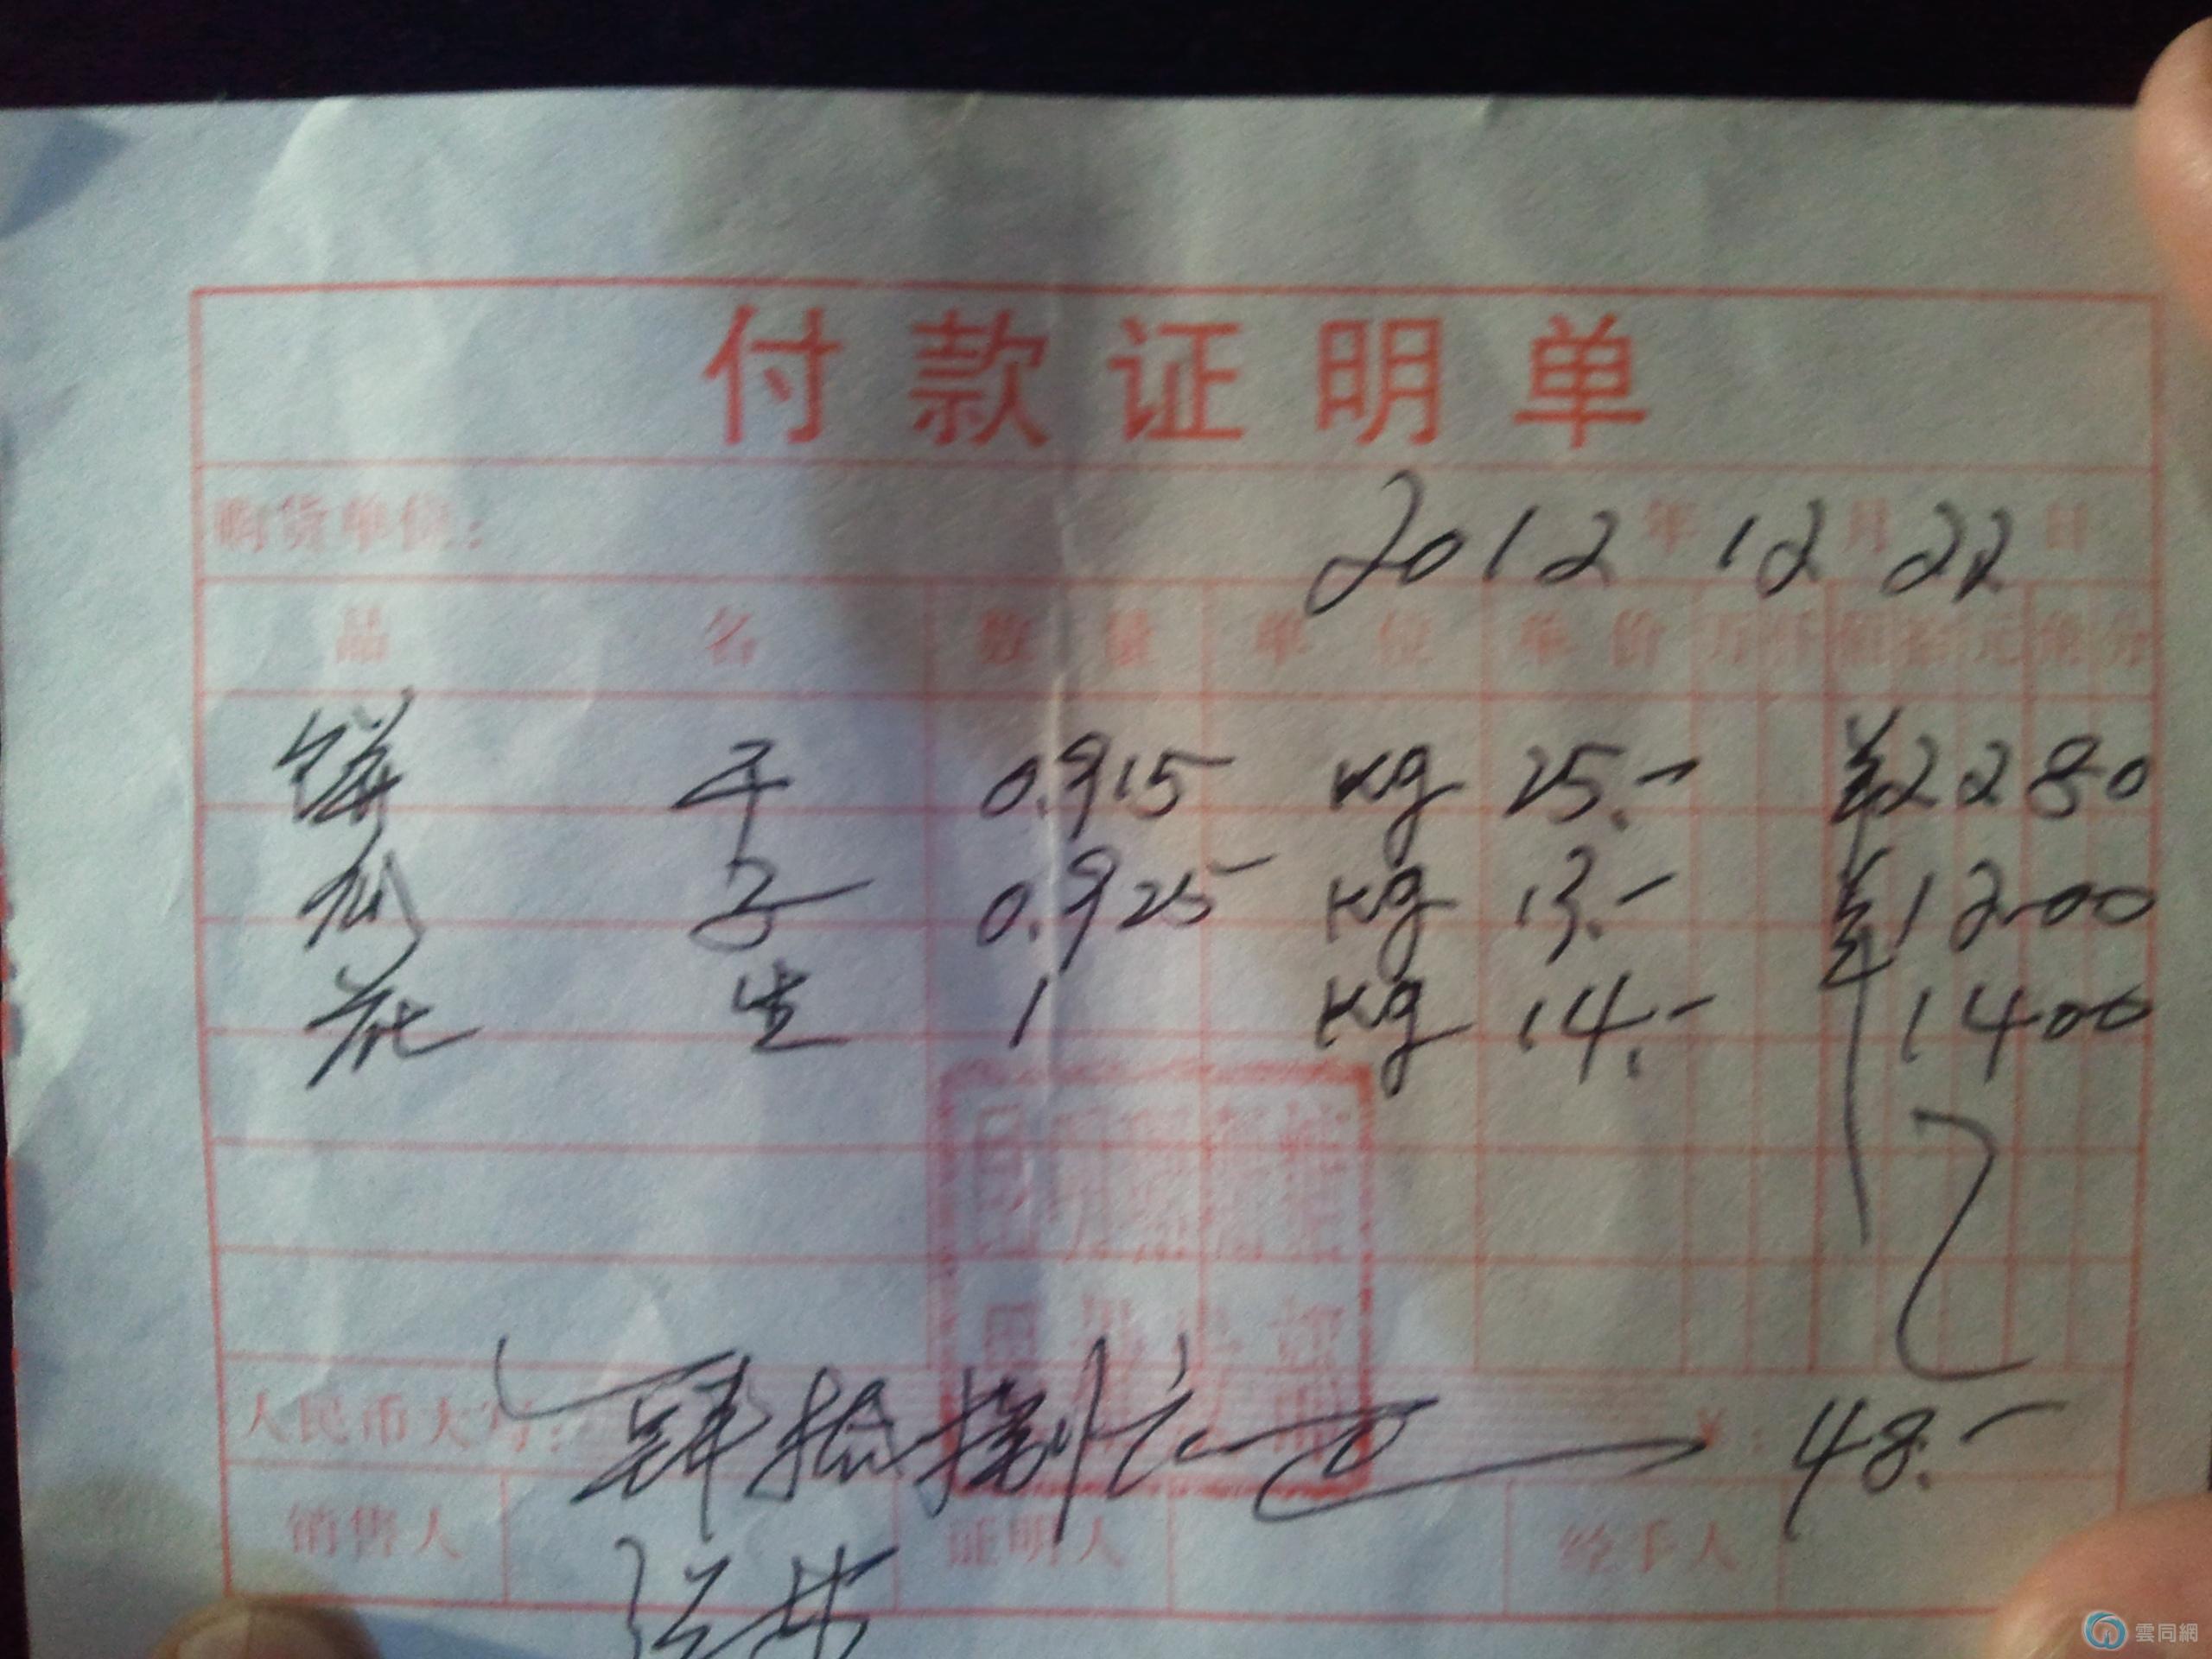 付款证明单
购货单位： 2012年12月22日
品名 数量 单位 单价 万仟佰拾元角分
饼干 0.915 kg 25.- ¥2280
瓜子 0.925 kg 13.- ¥1200
花生 1 kg 14.- 1400
人民币大写：肆拾捌元正 ¥：48.-
销售人 证明人 经手人
雲同網